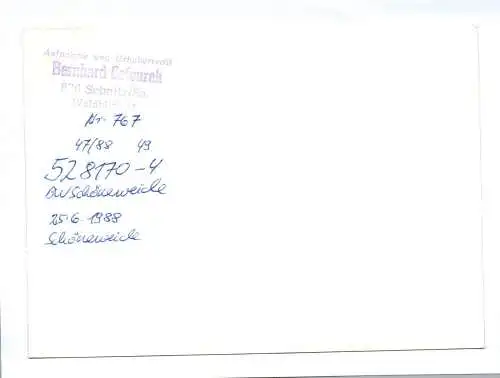 Aufnahme und Urheberrecht
Bernhard
Sebnitz/Sa.
Nr. 767
47/88 49
52 8170-4
BW Schöneweide
25.6.1988
Schöneweide